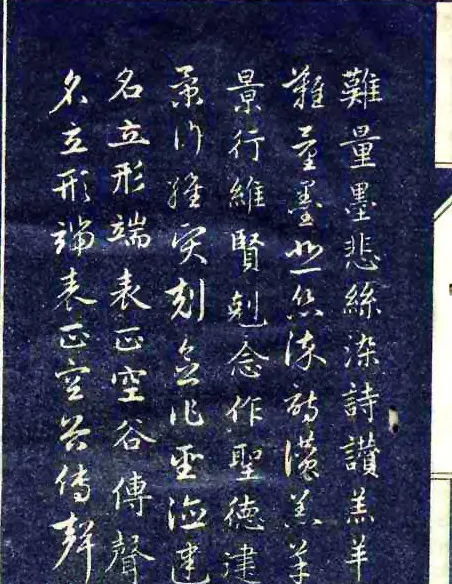 難量墨悲絲染詩讚羔羊
難量墨悲絲染詩讚羔羊
景行維賢剋念作聖德建
景行維賢剋念作聖德建
名立形端表正空谷傳聲
名立形端表正空谷傳聲